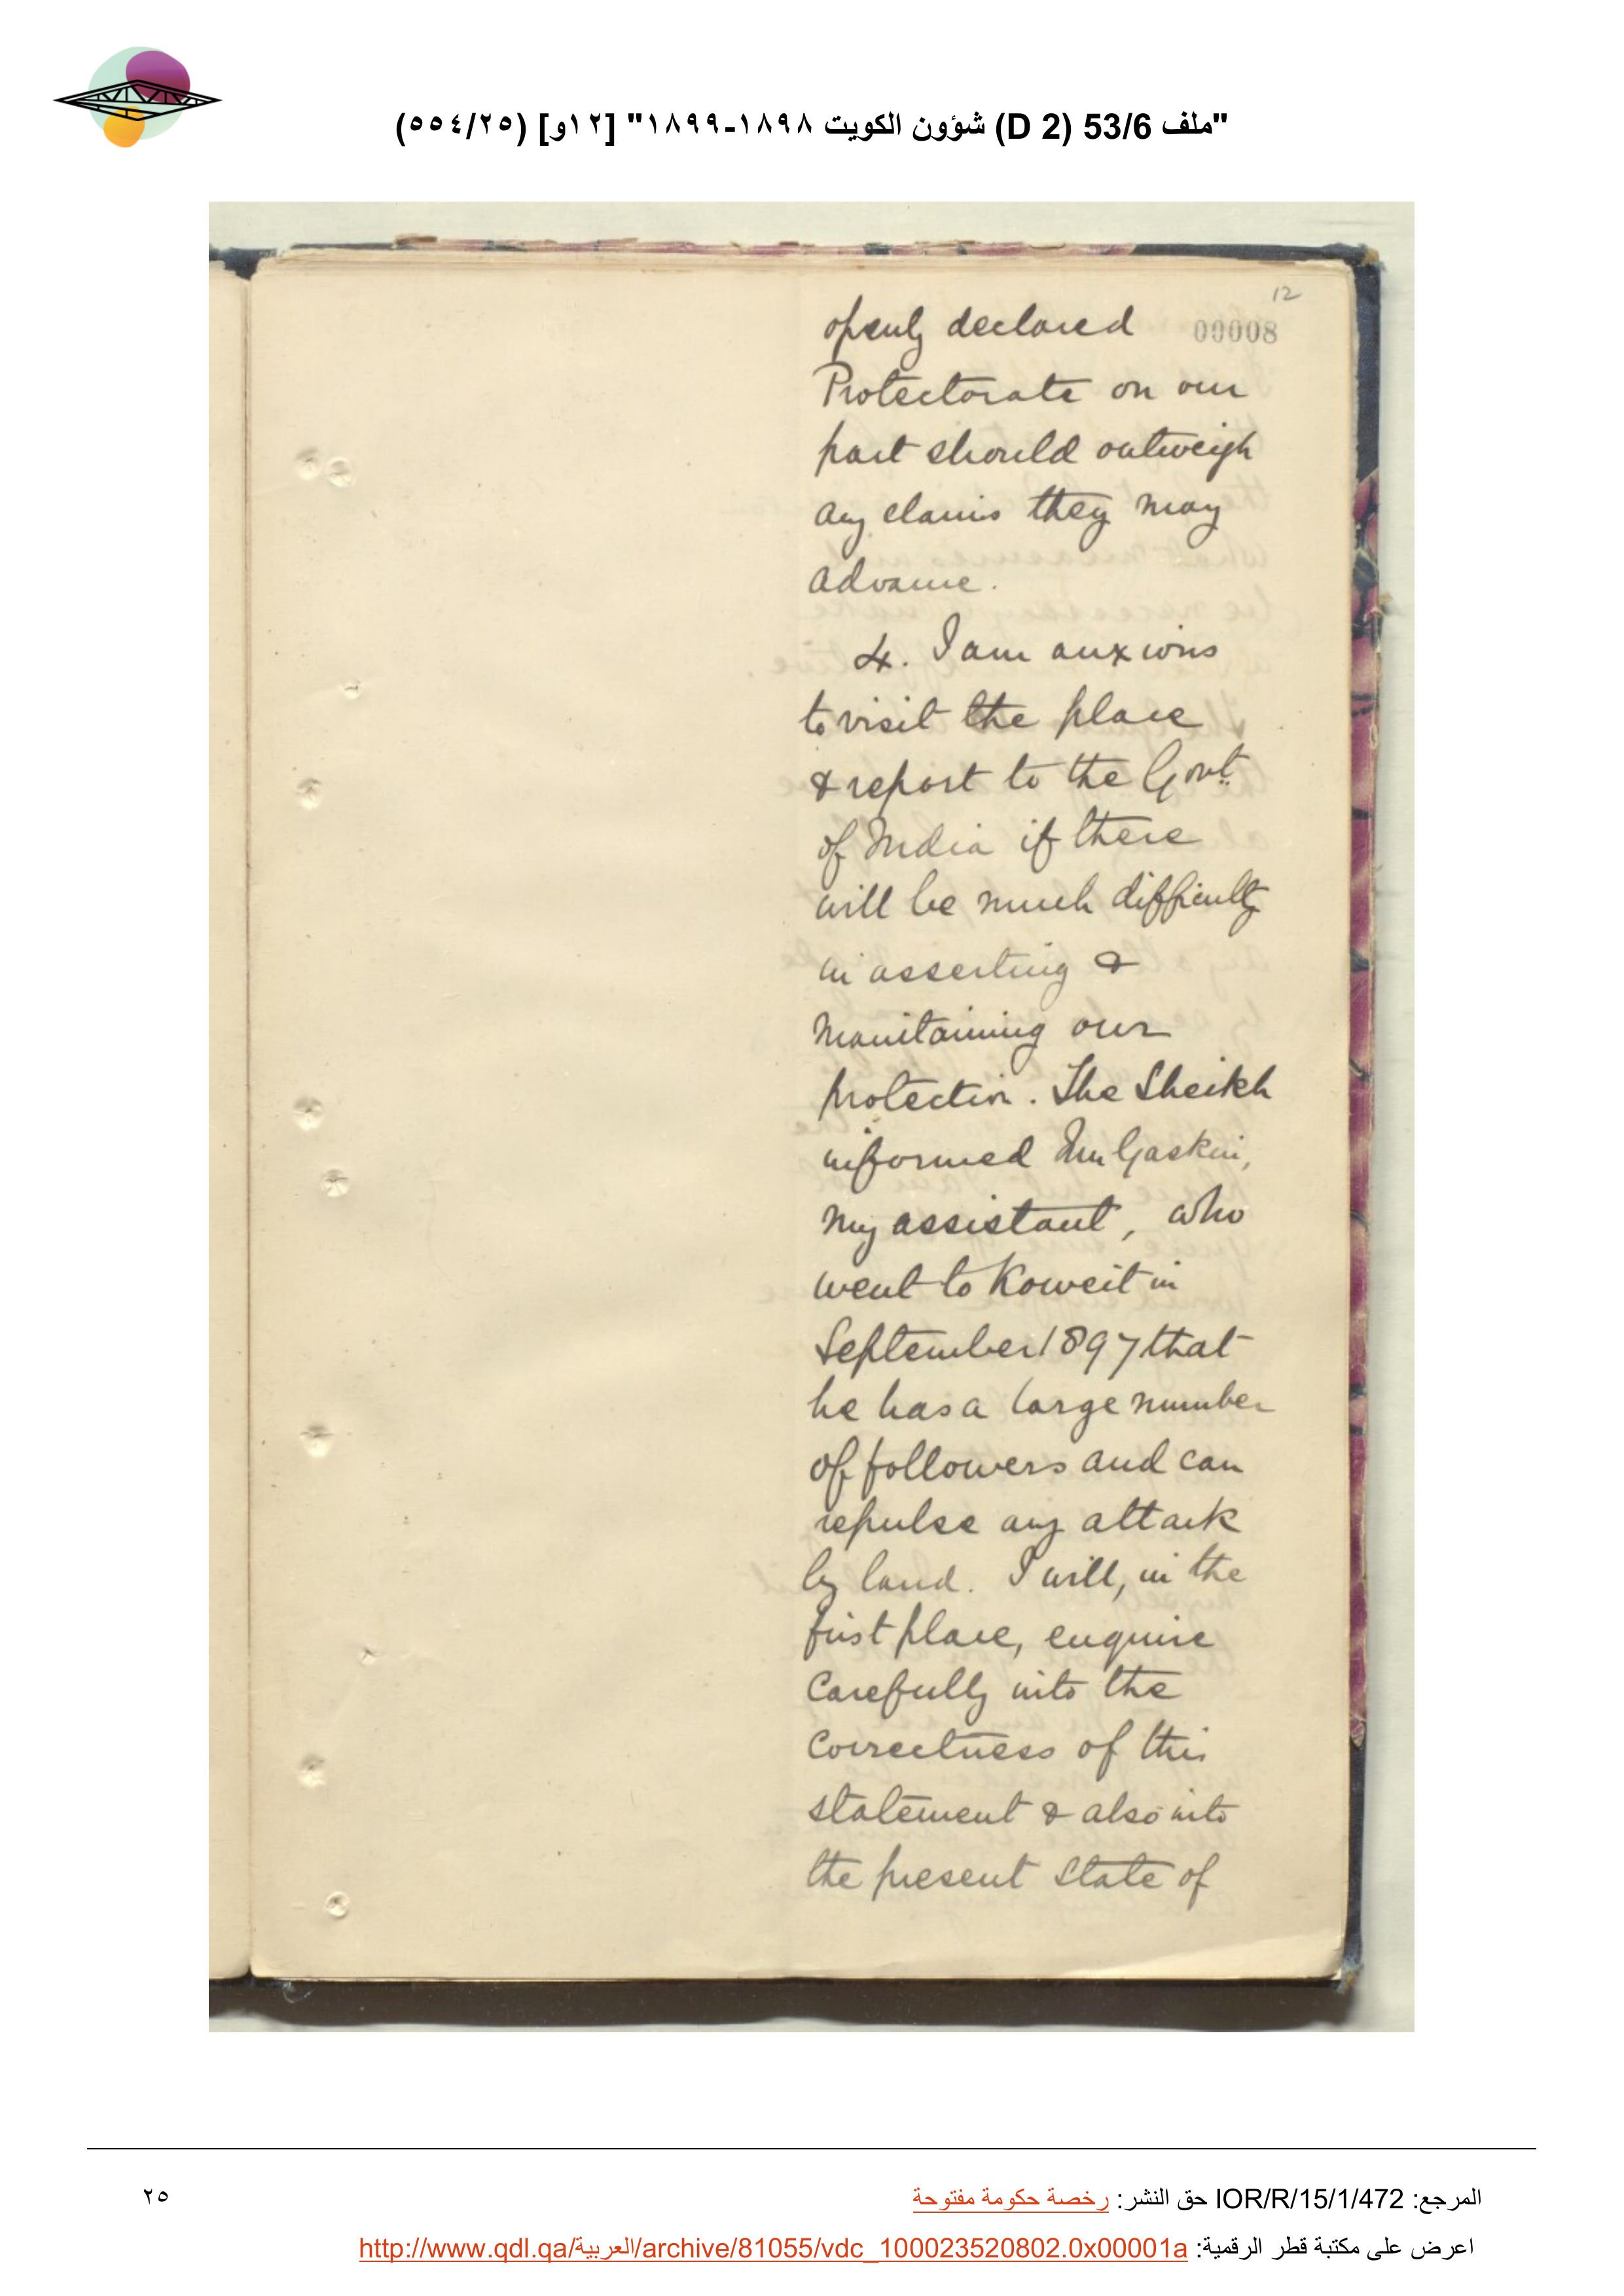 "ملف 53/6 (D 2) شؤون الكويت ١٨٩٨-١٨٩٩" [١٢و] (٥٥٤/٢٥)
12
openly declared 00008
Protectorate on our
part should outweigh
any claims they may
advance.
4. I am anxious
to visit the place
& report to the Govt.
of India if there
will be much difficulty
in asserting &
maintaining our
protection. The Sheikh
informed Mr Gaskin,
my assistant, who
went to Koweit in
September 1897 that
he has a large number
of followers and can
repulse any attack
by land. I will, in the
first place, enquire
carefully into the
correctness of this
statement & also into
the present state of
المرجع: IOR/R/15/1/472 حق النشر: رخصة حكومة مفتوحة
٢٥
اعرض على مكتبة قطر الرقمية: http://www.qdl.qa/العربية/archive/81055/vdc_100023520802.0x00001a